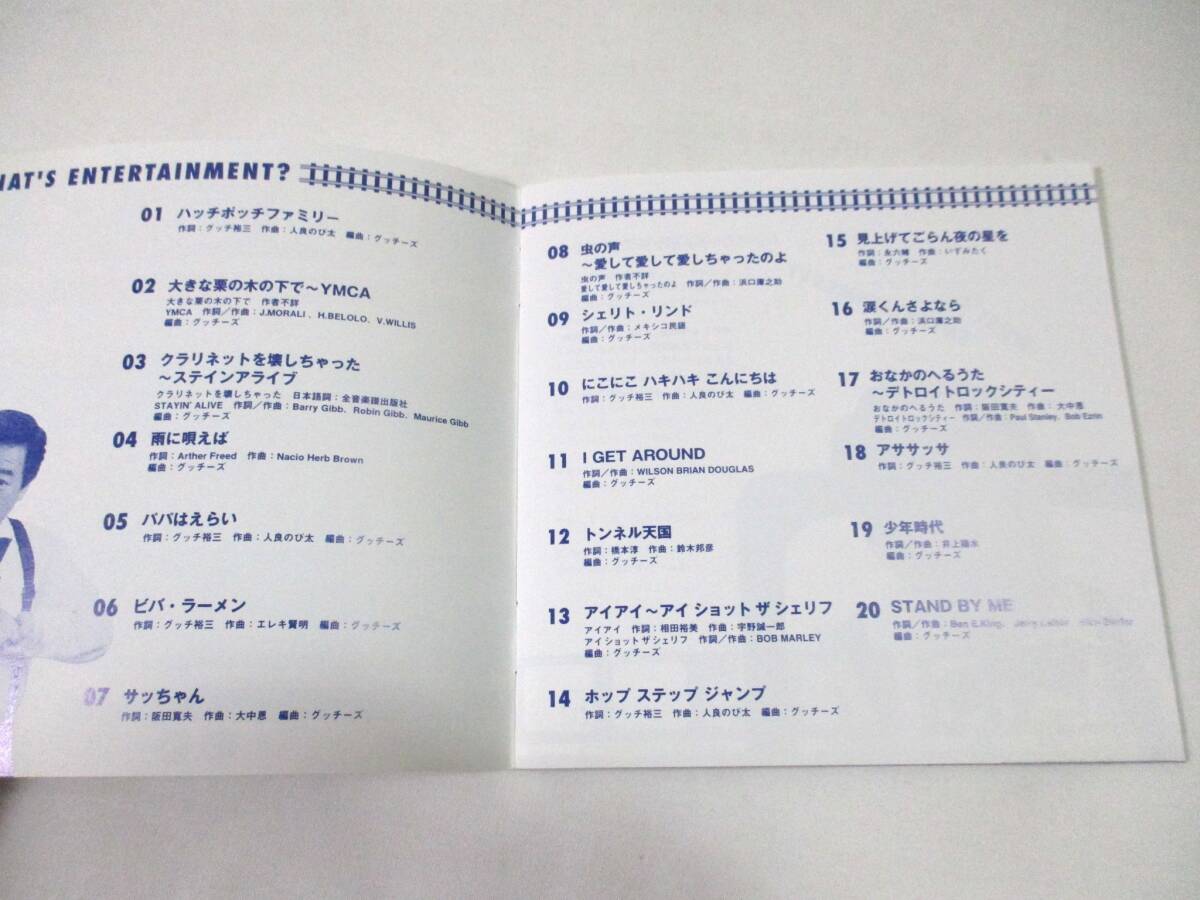 HAT'S ENTERTAINMENT?
01 ハッチポッチファミリー
作詞：グッチ裕三 作曲：人良のび太 編曲：グッチーズ
02 大きな栗の木の下で〜YMCA
大きな栗の木の下で 作者不詳
YMCA 作詞／作曲：J.MORALI、H.BELOLO、V.WILLIS
編曲：グッチーズ
03 クラリネットを壊しちゃった
〜ステインアライブ
クラリネットを壊しちゃった 日本語詞：全音楽譜出版社
STAYIN' ALIVE 作詞／作曲：Barry Gibb、Robin Gibb、Maurice Gibb
編曲：グッチーズ
04 雨に唄えば
作詞：Arther Freed 作曲：Nacio Herb Brown
編曲：グッチーズ
05 パパはえらい
作詞：グッチ裕三 作曲：人良のび太 編曲：グッチーズ
06 ビバ・ラーメン
作詞：グッチ裕三 作曲：エレキ賢明 編曲：グッチーズ
07 サッちゃん
作詞：阪田寛夫 作曲：大中恩 編曲：グッチーズ
08 虫の声
〜愛して愛して愛しちゃったのよ
虫の声 作者不詳
愛して愛して愛しちゃったのよ 作詞／作曲：浜口庫之助
編曲：グッチーズ
09 シェリト・リンド
作詞／作曲：メキシコ民謡
編曲：グッチーズ
10 にこにこ ハキハキ こんにちは
作詞：グッチ裕三 作曲：人良のび太 編曲：グッチーズ
11 I GET AROUND
作詞／作曲：WILSON BRIAN DOUGLAS
編曲：グッチーズ
12 トンネル天国
作詞：橋本淳 作曲：鈴木邦彦
編曲：グッチーズ
13 アイアイ〜アイ ショット ザ シェリフ
アイアイ 作詞：相田裕美 作曲：宇野誠一郎
アイ ショット ザ シェリフ 作詞／作曲：BOB MARLEY
編曲：グッチーズ
14 ホップ ステップ ジャンプ
作詞：グッチ裕三 作曲：人良のび太 編曲：グッチーズ
15 見上げてごらん夜の星を
作詞：永六輔 作曲：いずみたく
編曲：グッチーズ
16 涙くんさよなら
作詞／作曲：浜口庫之助
編曲：グッチーズ
17 おなかのへるうた
〜デトロイトロックシティー
おなかのへるうた 作詞：阪田寛夫 作曲：大中恩
デトロイトロックシティー 作詞／作曲：Paul Stanley、Bob Ezrin
編曲：グッチーズ
18 アササッサ
作詞：グッチ裕三 作曲：人良のび太 編曲：グッチーズ
19 少年時代
作詞／作曲：井上陽水
編曲：グッチーズ
20 STAND BY ME
作詞／作曲：Ben E.King、
編曲：グッチーズ